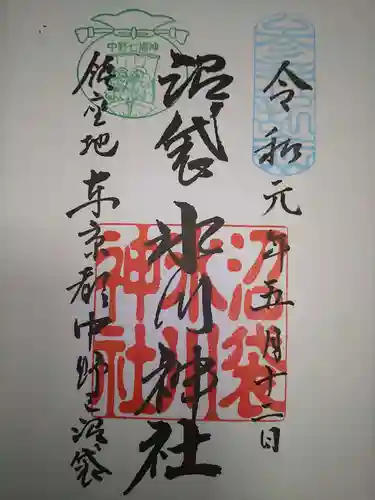 令和元年五月十二日
沼袋氷川神社
鎮座地 東京都中野区沼袋
中野七福神
沼袋氷川神社